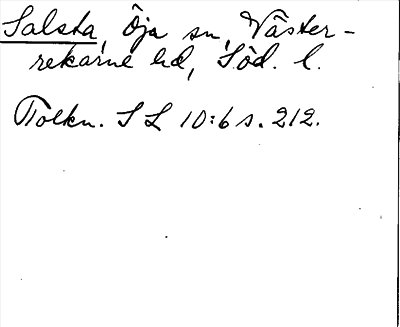 Salsta, Öja sn, Väster-
rekarne hd, Söd. l.
Tolkn. S L 10:6 s. 212.